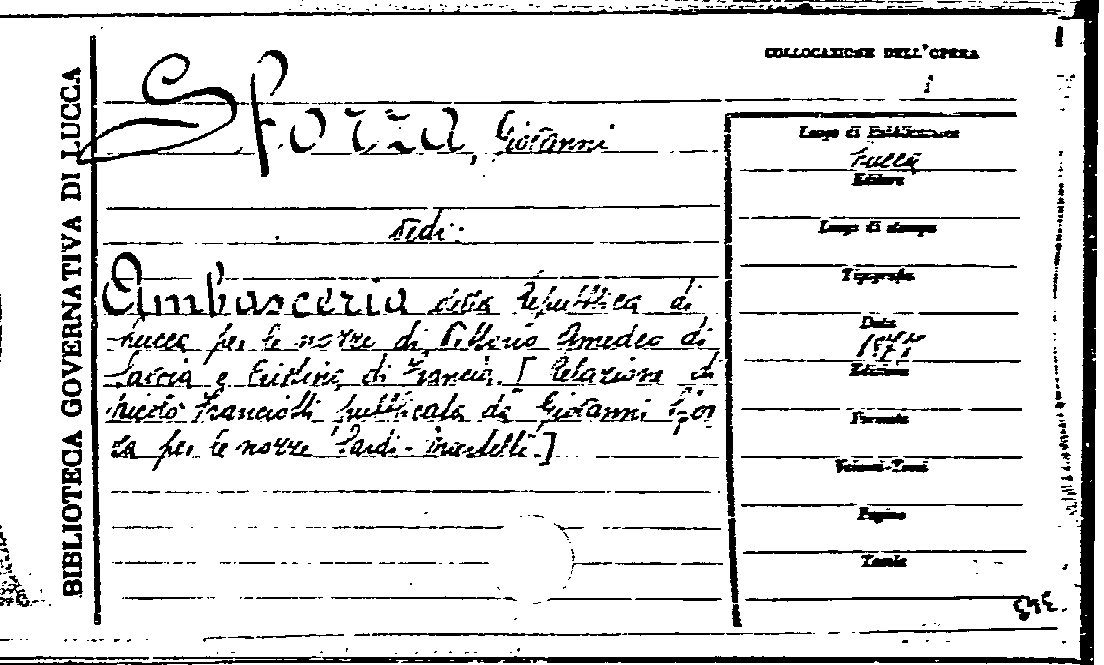 BIBLIOTECA GOVERNATIVA DI LUCCA
Sforza, Giovanni
vedi:
Ambasceria della Repubblica di
Lucca per le nozze di Vittorio Amedeo di
Savoia e Cristina di Francia. [Relazione di
Nicolò Franciotti pubblicata da Giovanni Sfor
za per le nozze Sardi-
COLLOCAZIONE DELL'OPERA
Luogo di Pubblicazione
Lucca
Editore
Luogo di stampa
Tipografia
Data
1877
Edizione
Formato
Volumi-Tomi
Pagine
Tavole